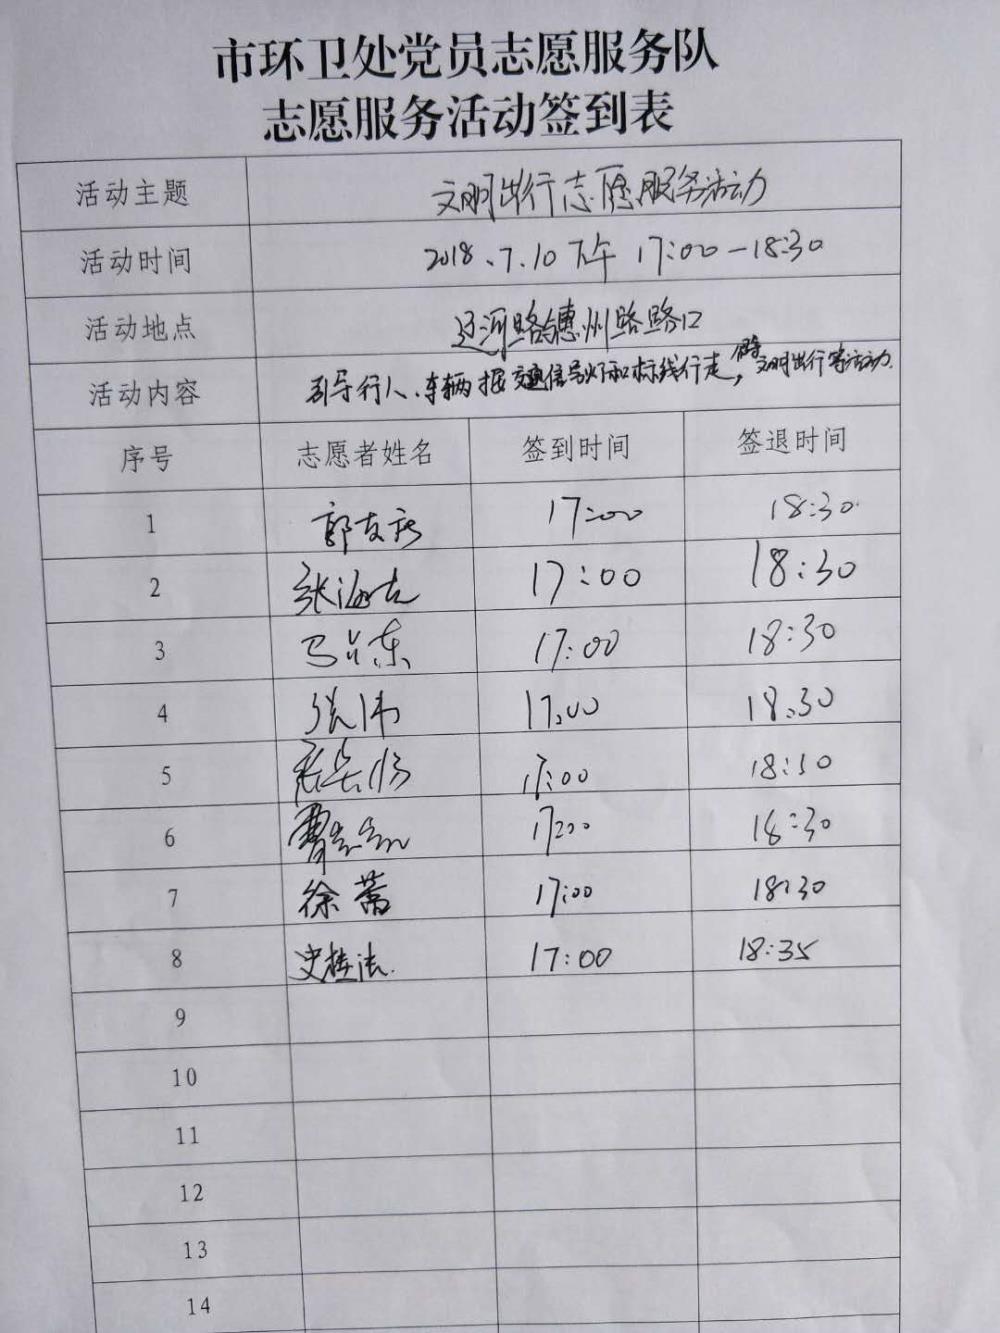 市环卫处党员志愿服务队
志愿服务活动签到表
活动主题 文明出行志愿服务活动
活动时间 2018.7.10 下午 17:00-18:30
活动地点 路德州路路口
活动内容 引导行人、车辆按交通信号灯和标线行走，文明出行等活动.
序号 志愿者姓名 签到时间 签退时间
1 郭友 17:00 18:30
2 张海 17:00 18:30
3 马 东 17:00 18:30
4 张伟 17:00 18:30
5 17:00 18:30
6 曹 17:00 18:30
7 徐蕾 17:00 18:30
8 史桂法. 17:00 18:35
9
10
11
12
13
14